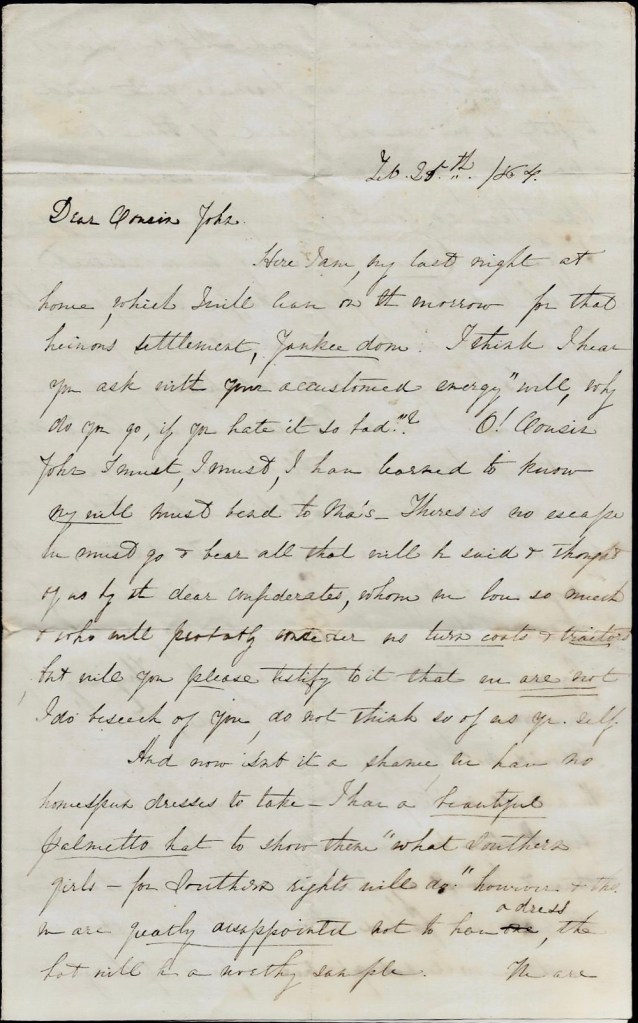 Feb. 25.th. /64.
Dear Cousin John.
Here I am, my last night at
home, which I will leave on the morrow for that
heinous settlement, Yankee dom. I think I hear
you ask with your accustomed energy "well, why
do you go, if you hate it so bad."? O! Cousin
John I must, I must, I have learned to know
my will must bend to Ma's - There is no escape
we must go & bear all that will be said & thought
of us by the dear confederates, whom we love so much
& who will probably consider us turn coats & traitors
but will you please testify to it that we are not
I do beseech of you, do not think so of us yr. self.
And now isn't it a shame, we have no
homespun dresses to take - I have a beautiful
palmetto hat to show them "what Southern
girls - for Southern rights will do." however &
we are greatly disappointed not to have a dress, the
hat will be a worthy sample. We are